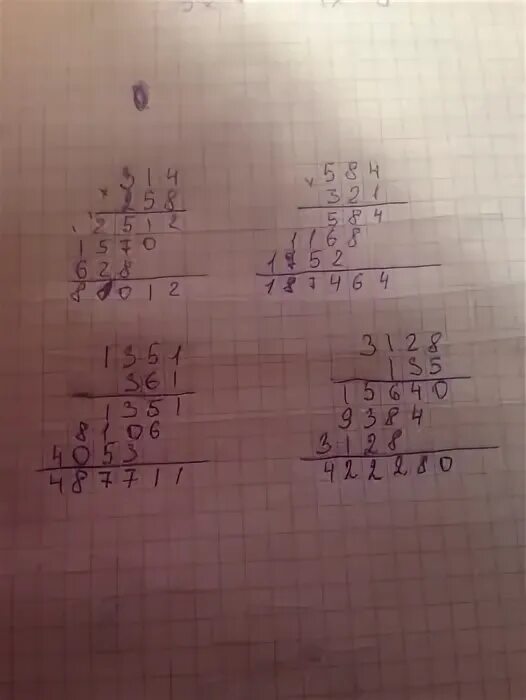 × 314
258
2512
1570
628
81012
× 584
321
584
1168
1752
187464
1351
361
1351
8106
4053
487711
3128
135
15640
9384
3128
422280